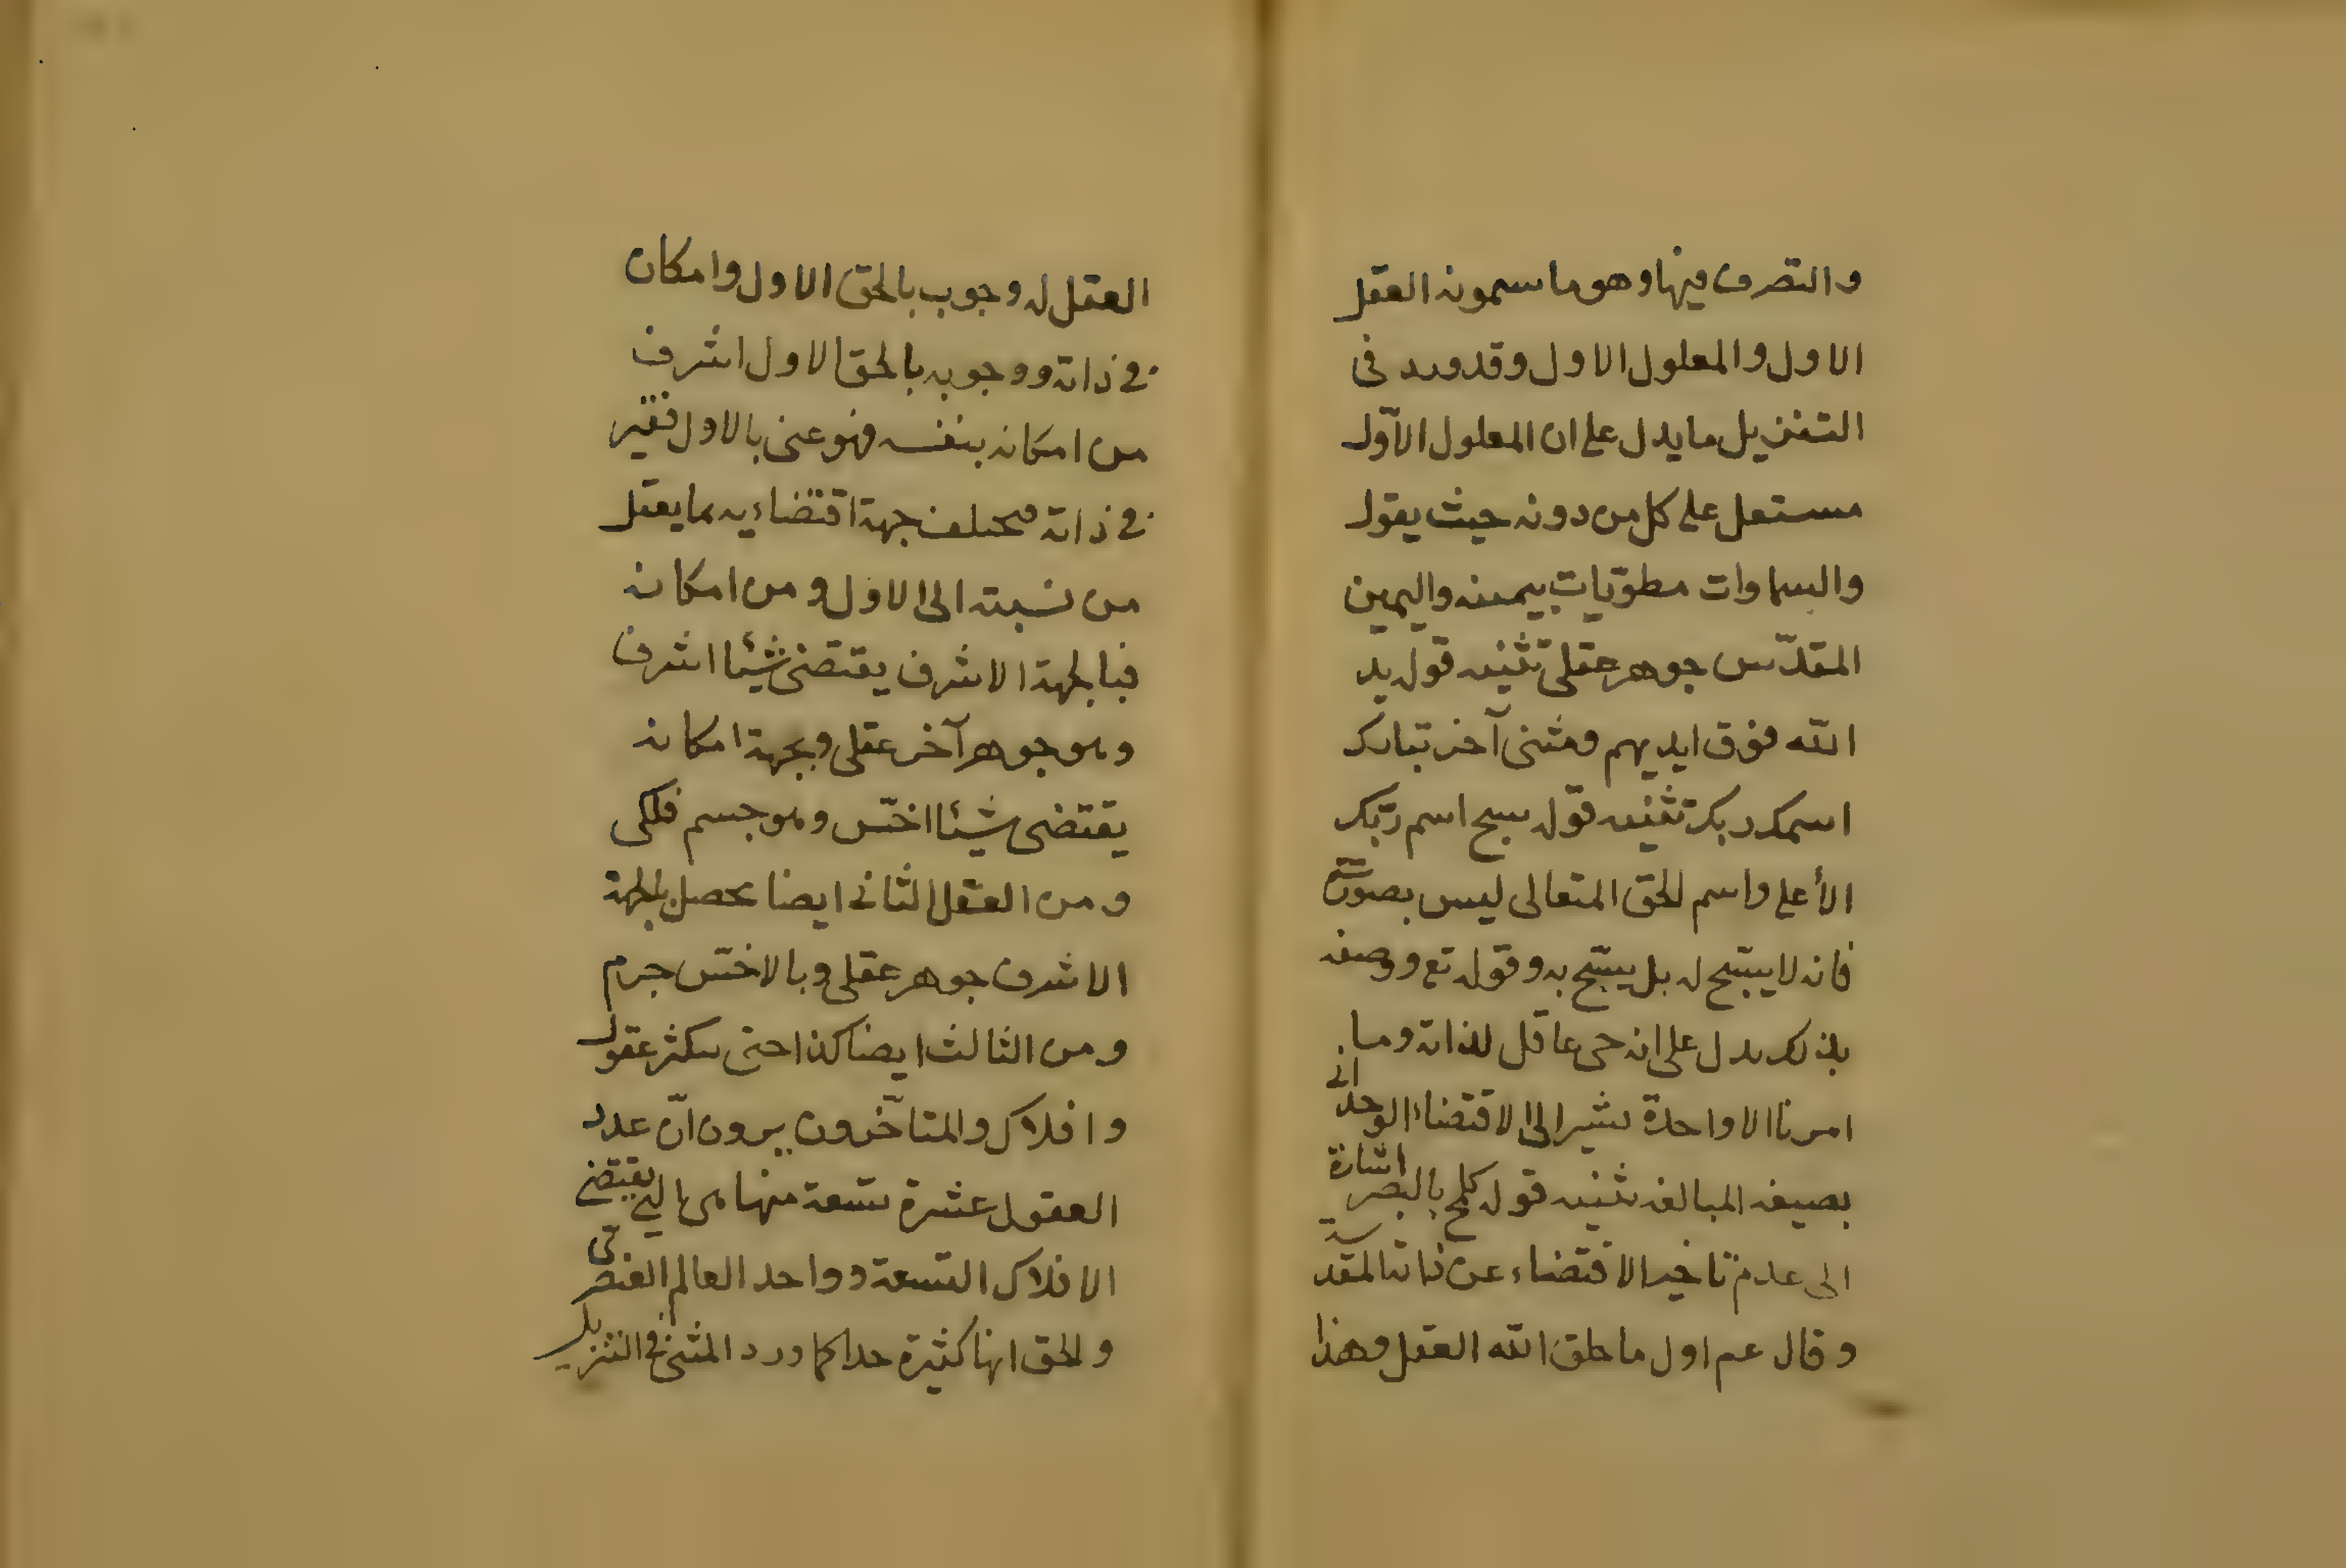 والتصرف فيها وهو ما يسمونه العقل
الاول والمعلول الاول وقد ورد فى
التنزيل ما يدل على ان المعلول الاوّل
مستعل على كل من دونه حيث يقول
والسماوات مطويّات بيمينه واليمين
المقدّس جوهر عقلى تثنيه قوله يد
الله فوق ايديهم ومثنى آخر تبارك
اسمك ربك تثنيه قوله سبح اسم ربّك
الأعلى واسم الحق المتعالى ليس بصوت
فانه لا يسبّح له بل يسبّح به وقوله تع ووصفه
بذلك يدل على انه حى عاقل لذاته وما
امرنا الا واحدة يشير الى الاقتضاء الوحدانى
بصيغة المبالغة تثنيه قوله كلمح بالبصر اشارة
الى عدم تاخير الاقتضاء عن ذاته المقدسة
وقال عم اول ما خلق الله العقل وهذا
العقل له وجوب بالحق الاول وامكان
فى ذاته ووجوبه بالحق الاول اشرف
من امكانه بنفسه فهو غنى بالاول فقير
فى ذاته مختلف جهة اقتضاءيه بما يعقل
من نسبته الى الاول ومن امكانه
فبالجهة الاشرف يقتضى شيئا اشرف
وهو جوهر آخر عقلى وبجهة امكانه
يقتضى شيئا اخسّ وهو جسم فلكى
ومن العقل الثانى ايضا يحصل بالجهة
الاشرف جوهر عقلى وبالاخسّ جرم
ومن الثالث ايضا كذا حتى يكثر عقول
وافلاك والمتاخّرون يرون انّ عدد
العقول عشرة تسعة منها هى التى يقتضى
الافلاك التسعة وواحد العالم العنصرى
والحق انها كثيرة جدا كما ورد المثنى فى التنزيل